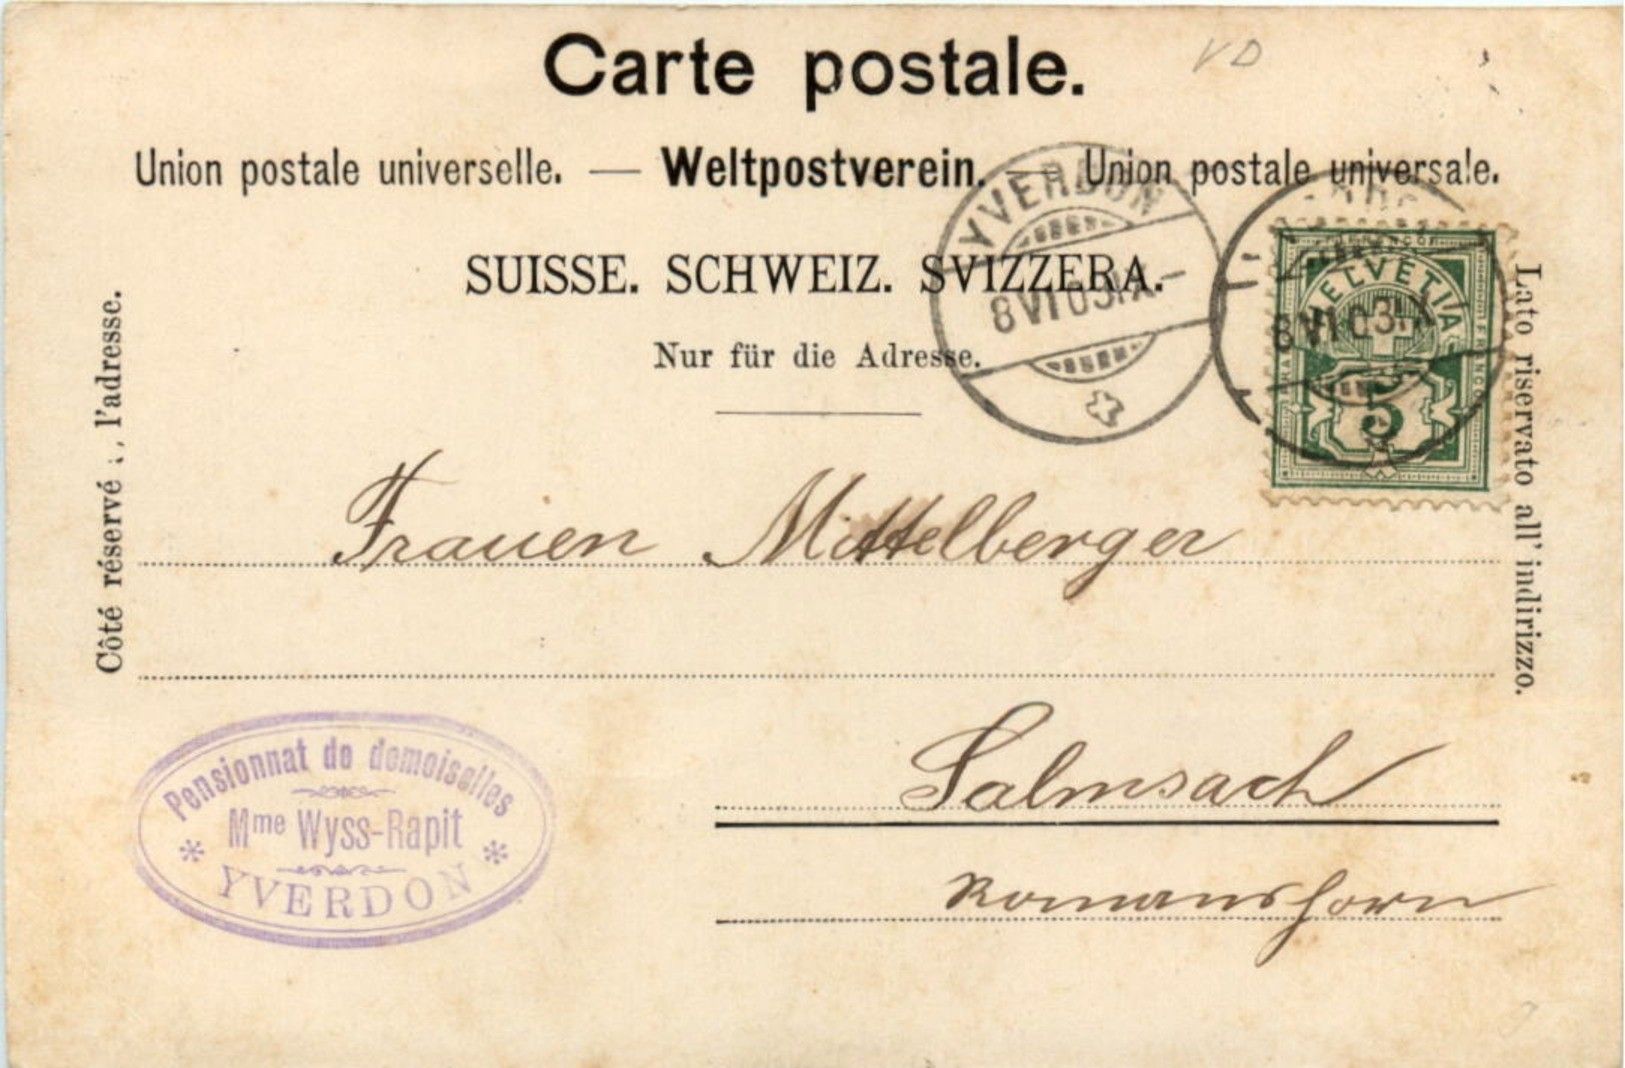 Carte postale.
VD
Union postale universelle. — Weltpostverein. — Union postale universale.
SUISSE. SCHWEIZ. SVIZZERA.
Nur für die Adresse.
YVERDON
8 VI 03 IX –
8 VI 03 IX
FRANCO
HELVETIA
5
Côté réservé à l'adresse.
Lato riservato all' indirizzo.
Frauen Mittelberger
Salmsach
Romanshorn
Pensionnat de demoiselles
Mme Wyss-Rapit
* YVERDON *